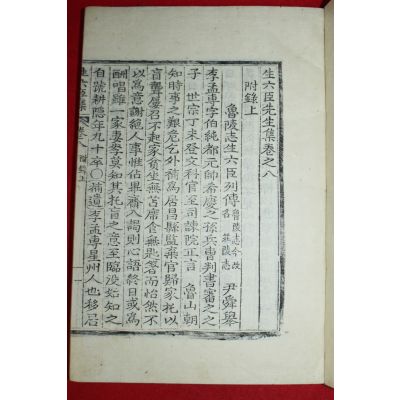 生六臣先生集卷之八
附錄上
魯陵志生六臣列傳 魯陵志今改名莊陵志 尹舜擧
李孟專字伯純都元帥希慶之孫兵曹判書審之之
子 世宗丁未登文科官至司諫院正言 魯山朝
知時事之艱危乞外爲居昌縣監棄官歸家托以
盲聾屢召不起家貧坐無苫席食無匙箸而怡然不
以爲意謝絶人事惟佔畢齋入謁則心語終日或爲
酬唱雖一家妻孥莫知其托盲之意至臨沒始知之
自號耕隱年九十卒○補遺李孟專星州人也移居
生六臣集 卷八 附錄上